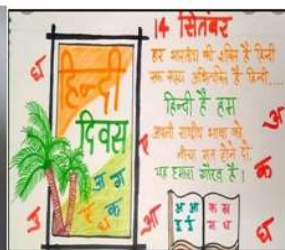 14 सितंबर
हर भारतीय की शक्ति है हिन्दी
एक सहज अभिव्यक्ति है हिन्दी....
हिन्दी है हम
अपनी राष्ट्रीय भाषा को
नीचा मत होने दो.
यह हमारा गौरव है।
हिन्दी
दिवस
घ
अ
ग
क
आ
अ आ
क ख
ग घ